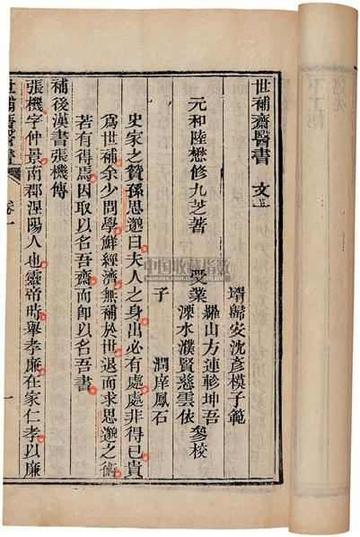 世補齋醫書　文一
元和陸懋修九芝著　受業
壻歸安沈彥模子範
羅山方連軫坤吾
溧水濮賢慈雲依　參校
子　潤庠鳳石
史家之贊孫思邈曰夫人之身出必有處處非得已貴
爲世補余少問學鮮經濟無補於世退而求思邈之術
若有得焉因取以名吾齋而即以名吾書
補後漢書張機傳
張機字仲景南郡涅陽人也靈帝時舉孝廉在家仁孝以廉
世補齋醫書
卷一
一
中国收藏指数